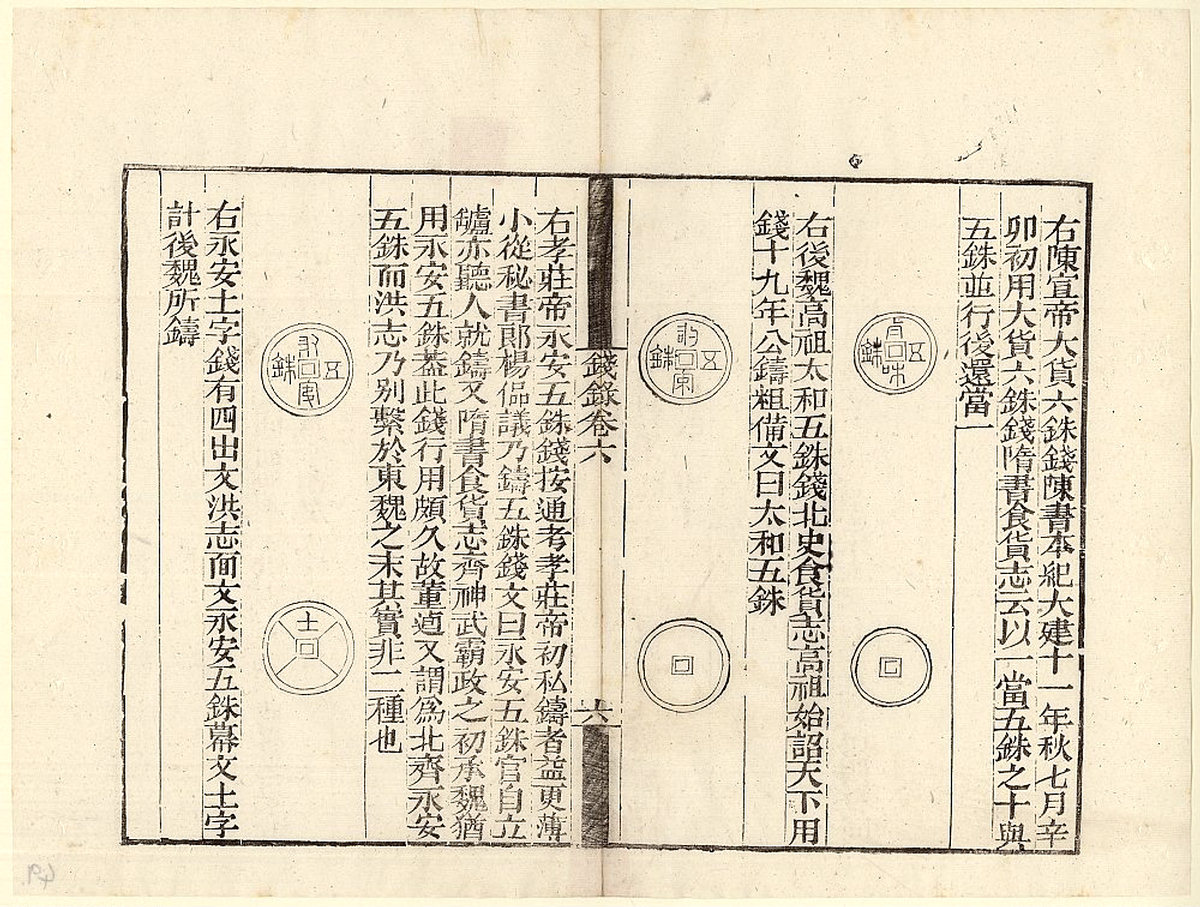 右陳宣帝大貨六銖錢陳書本紀大建十一年秋七月辛
卯初用大貨六銖錢隋書食貨志云以一當五銖之十與
五銖並行後還當一
五銖
右後魏高祖太和五銖錢北史食貨志高祖始詔天下用
錢十九年公鑄粗備文曰太和五銖
五銖
錢錄卷六
六
右孝莊帝永安五銖錢按通考孝莊帝初私鑄者益更薄
小從秘書郎楊侃議乃鑄五銖錢文曰永安五銖官自立
鑪亦聽人就鑄又隋書食貨志齊神武霸政之初承魏猶
用永安五銖葢此錢行用頗久故董逌又謂爲北齊永安
五銖而洪志乃别繫於東魏之末其實非二種也
五銖
土
右永安土字錢有四出文洪志面文永安五銖幕文土字
計後魏所鑄